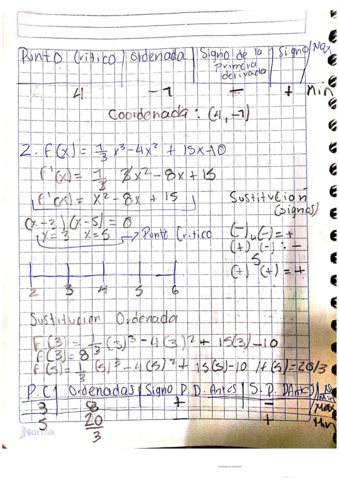 Punto Crítico ordenada Signo de la primera derivada Signo Max
4 -7 - + Min
Coordenada: (4,-7)
2. F(x) = 1/3 x³-4x² + 15x-10
F'(x) = 1/3 3x²-8x+15
F'(x) = x²-8x+15
(x-3)(x-5)=0
x=3 x=5 → Punto Critico
Sustitución (signos)
(-) (-) = +
(+) (-) = -
5
(+) (+) = +
2 3 4 5 6
Sustitucion Ordenada
F(3) = 1/3 (3)³-4(3)²+15(3)-10
F(3) = 8
F(5) = 1/3 (5)³-4(5)²+15(5)-10 F(5)=20/3
P.C Ordenadas Signo P.D. Antes S.P.D
3 8 + - Max
5 20/3 + Min
Norma